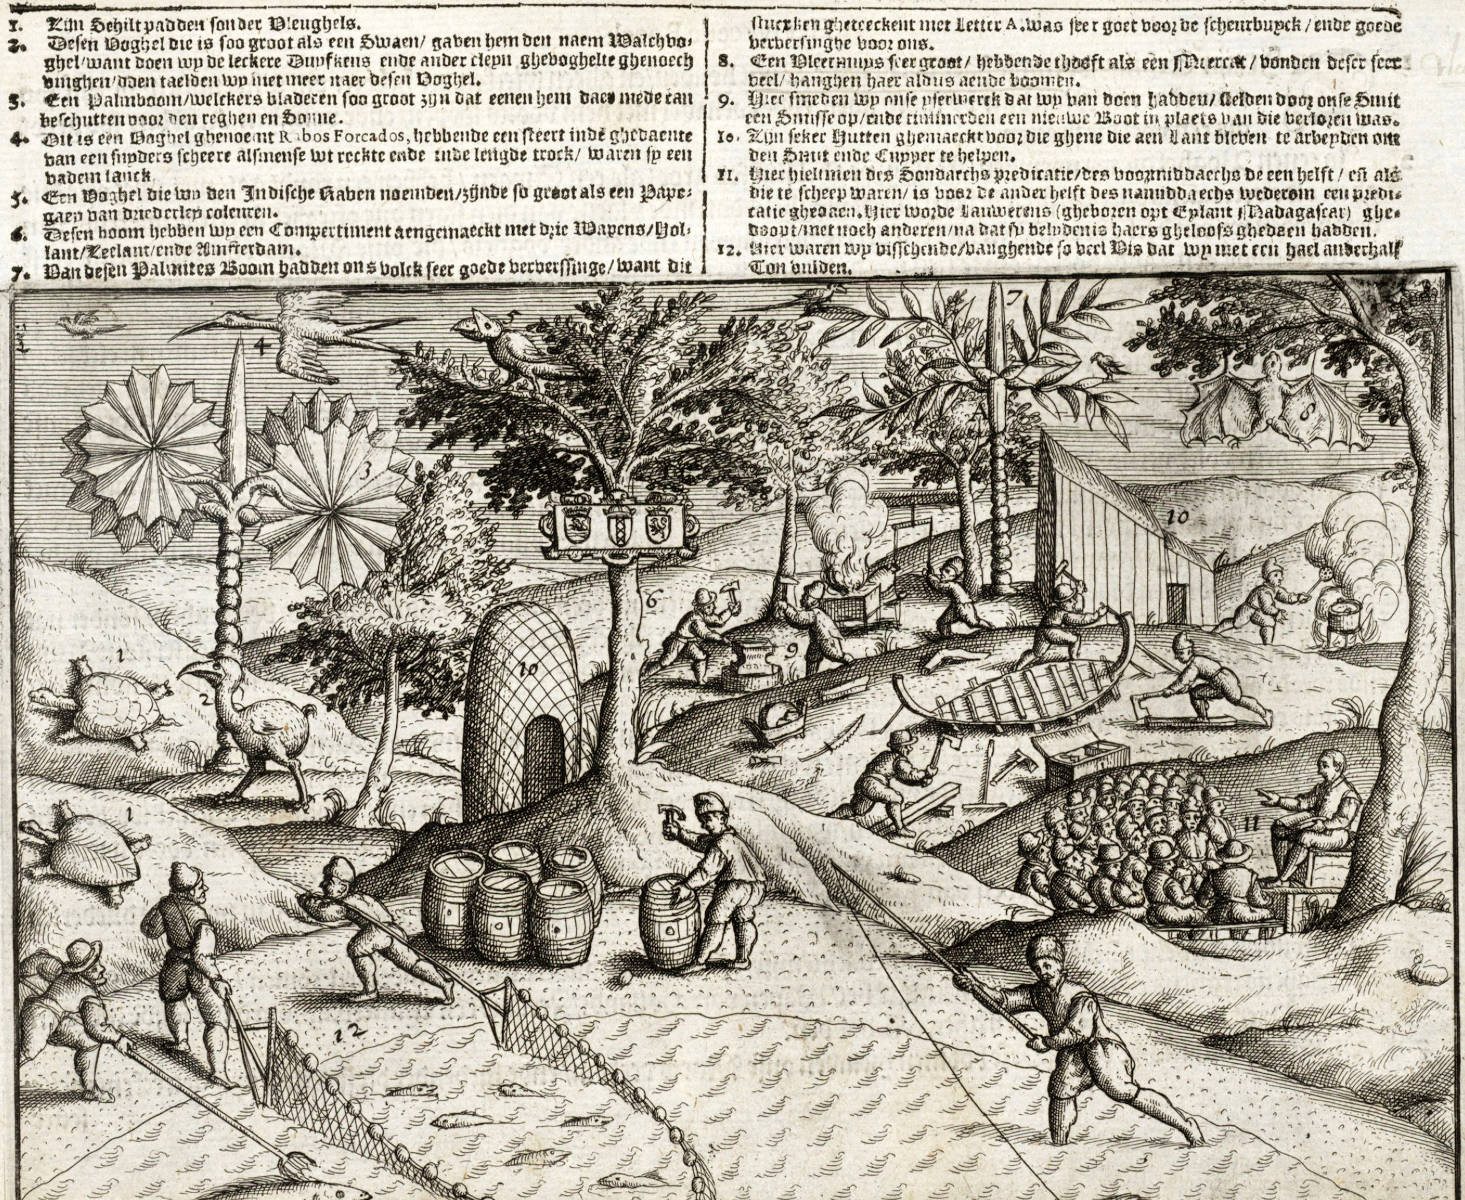 1. Zijn Schiltpadden sonder Vleughels.
2. Desen Voghel die is soo groot als een Swaen/ gaven hem den naem Walchvo-
ghel/want doen wy de leckere Duyfkens ende ander cleyn ghevoghelte ghenoech
vinghen/doen taelden wy niet meer naer desen Voghel.
3. Een Palmboom/welckers bladeren soo groot zijn dat eenen hem daer mede can
beschutten voor den reghen en Sonne.
4. Dit is een Voghel ghenoemt Rabos Forcados, hebbende een steert inde ghedaente
van een snyders scheere alsmense wt reckte ende inde lengde trock/ waren sy een
vadem lanck.
5. Een Voghel die wy den Indische Raben noemden/zijnde so groot als een Pape-
gaey van driederley coleuren.
6. Desen boom hebben wy een Compertiment aengemaeckt met drie Wapens/Hol-
lant/Zeelant/ende Amsterdam.
7. Van desen Palmites Boom hadden ons volck seer goede ververssinge/want dit
stucxken gheteeckent met Letter A. was seer goet voor de scheurbuyck/ende goede
verversinghe voor ons.
8. Een Vleermuys seer groot/ hebbende thooft als een Meercat/ vonden deser seer
veel/ hanghen haer aldus aende boomen.
9. Hier smeden wy onse yserwerck dat wy van doen hadden/ stelden door onse Smit
een Smisse op/ende timmerden een nieuwe Boot in plaets van die verloren was.
10. Zijn seker Hutten ghemaeckt voor die ghene die aen Lant bleven te arbeyden om
den Smit ende Cuyper te helpen.
11. Hier hielt men des Sondaechs predicatie/des voormiddaechs de een helft/ en als
die te scheep waren/ is voor de ander helft des namiddaechs wederom een predi-
catie ghedaen. Hier worde Lauwerens (gheboren opt Eylant Madagascar) ghe-
doopt/met noch anderen/na dat sy belydenis haers gheloofs ghedaen hadden.
12. Hier waren wy visschende/vanghende so veel Vis dat wy met een hael anderhalf
Ton vulden.
4
5
7
8
3
A
10
6
9
10
1
2
1
11
12